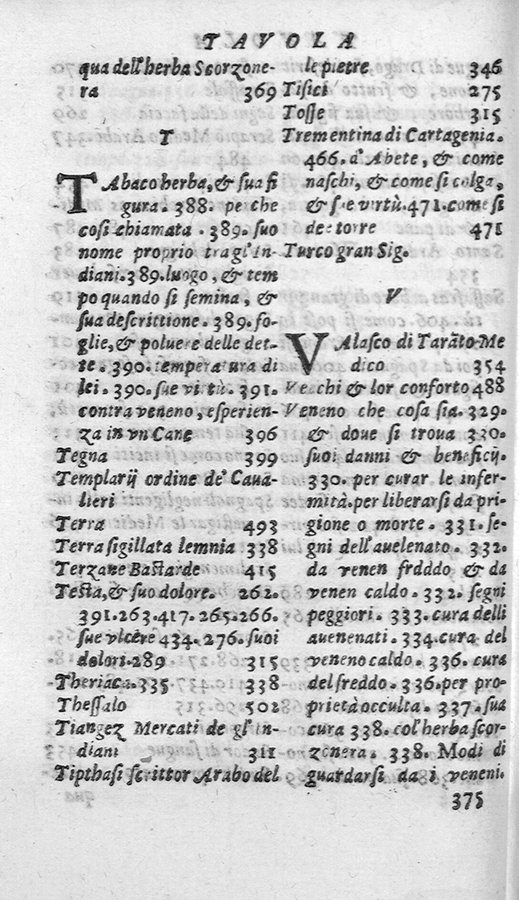 TAVOLA
qua dell'herba Scorzone-
ra 369
T
TAbaco herba, & sua fi
gura. 388. pe che
cosi chiamata. 389. suo
nome proprio tragl'in-
diani. 389. luogo, & tem
po quando si semina, &
sua descrittione. 389. fo-
glie, & poluere delle det-
te. 390. temperatura di
lei. 390. sue virtù. 391.
contra veneno, esperien-
za in vn Cane 396
Tegna 399
Templarij ordine de' Caua-
lieri
Terra 493
Terra sigillata lemnia 338
Terzane Bastarde 415
Testa, & suo dolore. 262.
391. 263. 417. 265. 266.
sue vlcere 434. 276. suoi
dolori. 289 315
Theriaca. 335 338
Thessalo 502
Tianguez Mercati de gl'in-
diani 311
Tipthasi scrittor Arabo del
le pietre 346
Tisici 275
Tosse 315
Trementina di Cartagenia.
466. d'Abete, & come
naschi, & come si colga,
& sue virtù. 471. come si
dee torre 471
Turco gran Sig.
V
VAlasco di Tarāto Me
dico 354
Vecchi & lor conforto 488
Veneno che cosa sia. 329.
& doue si troua 330.
suoi danni & beneficij.
330. per curar le infer-
mità. per liberarsi da pri-
gione o morte. 331. se-
gni dell'auelenato. 332.
da venen frdddo & da
venen caldo. 332. segni
peggiori. 333. cura delli
auenenati. 334. cura del
veneno caldo. 336. cura
del freddo. 336. per pro-
prietà occulta. 337. sua
cura 338. col'herba scor-
zonera. 338. Modi di
guardarsi da i veneni.
375